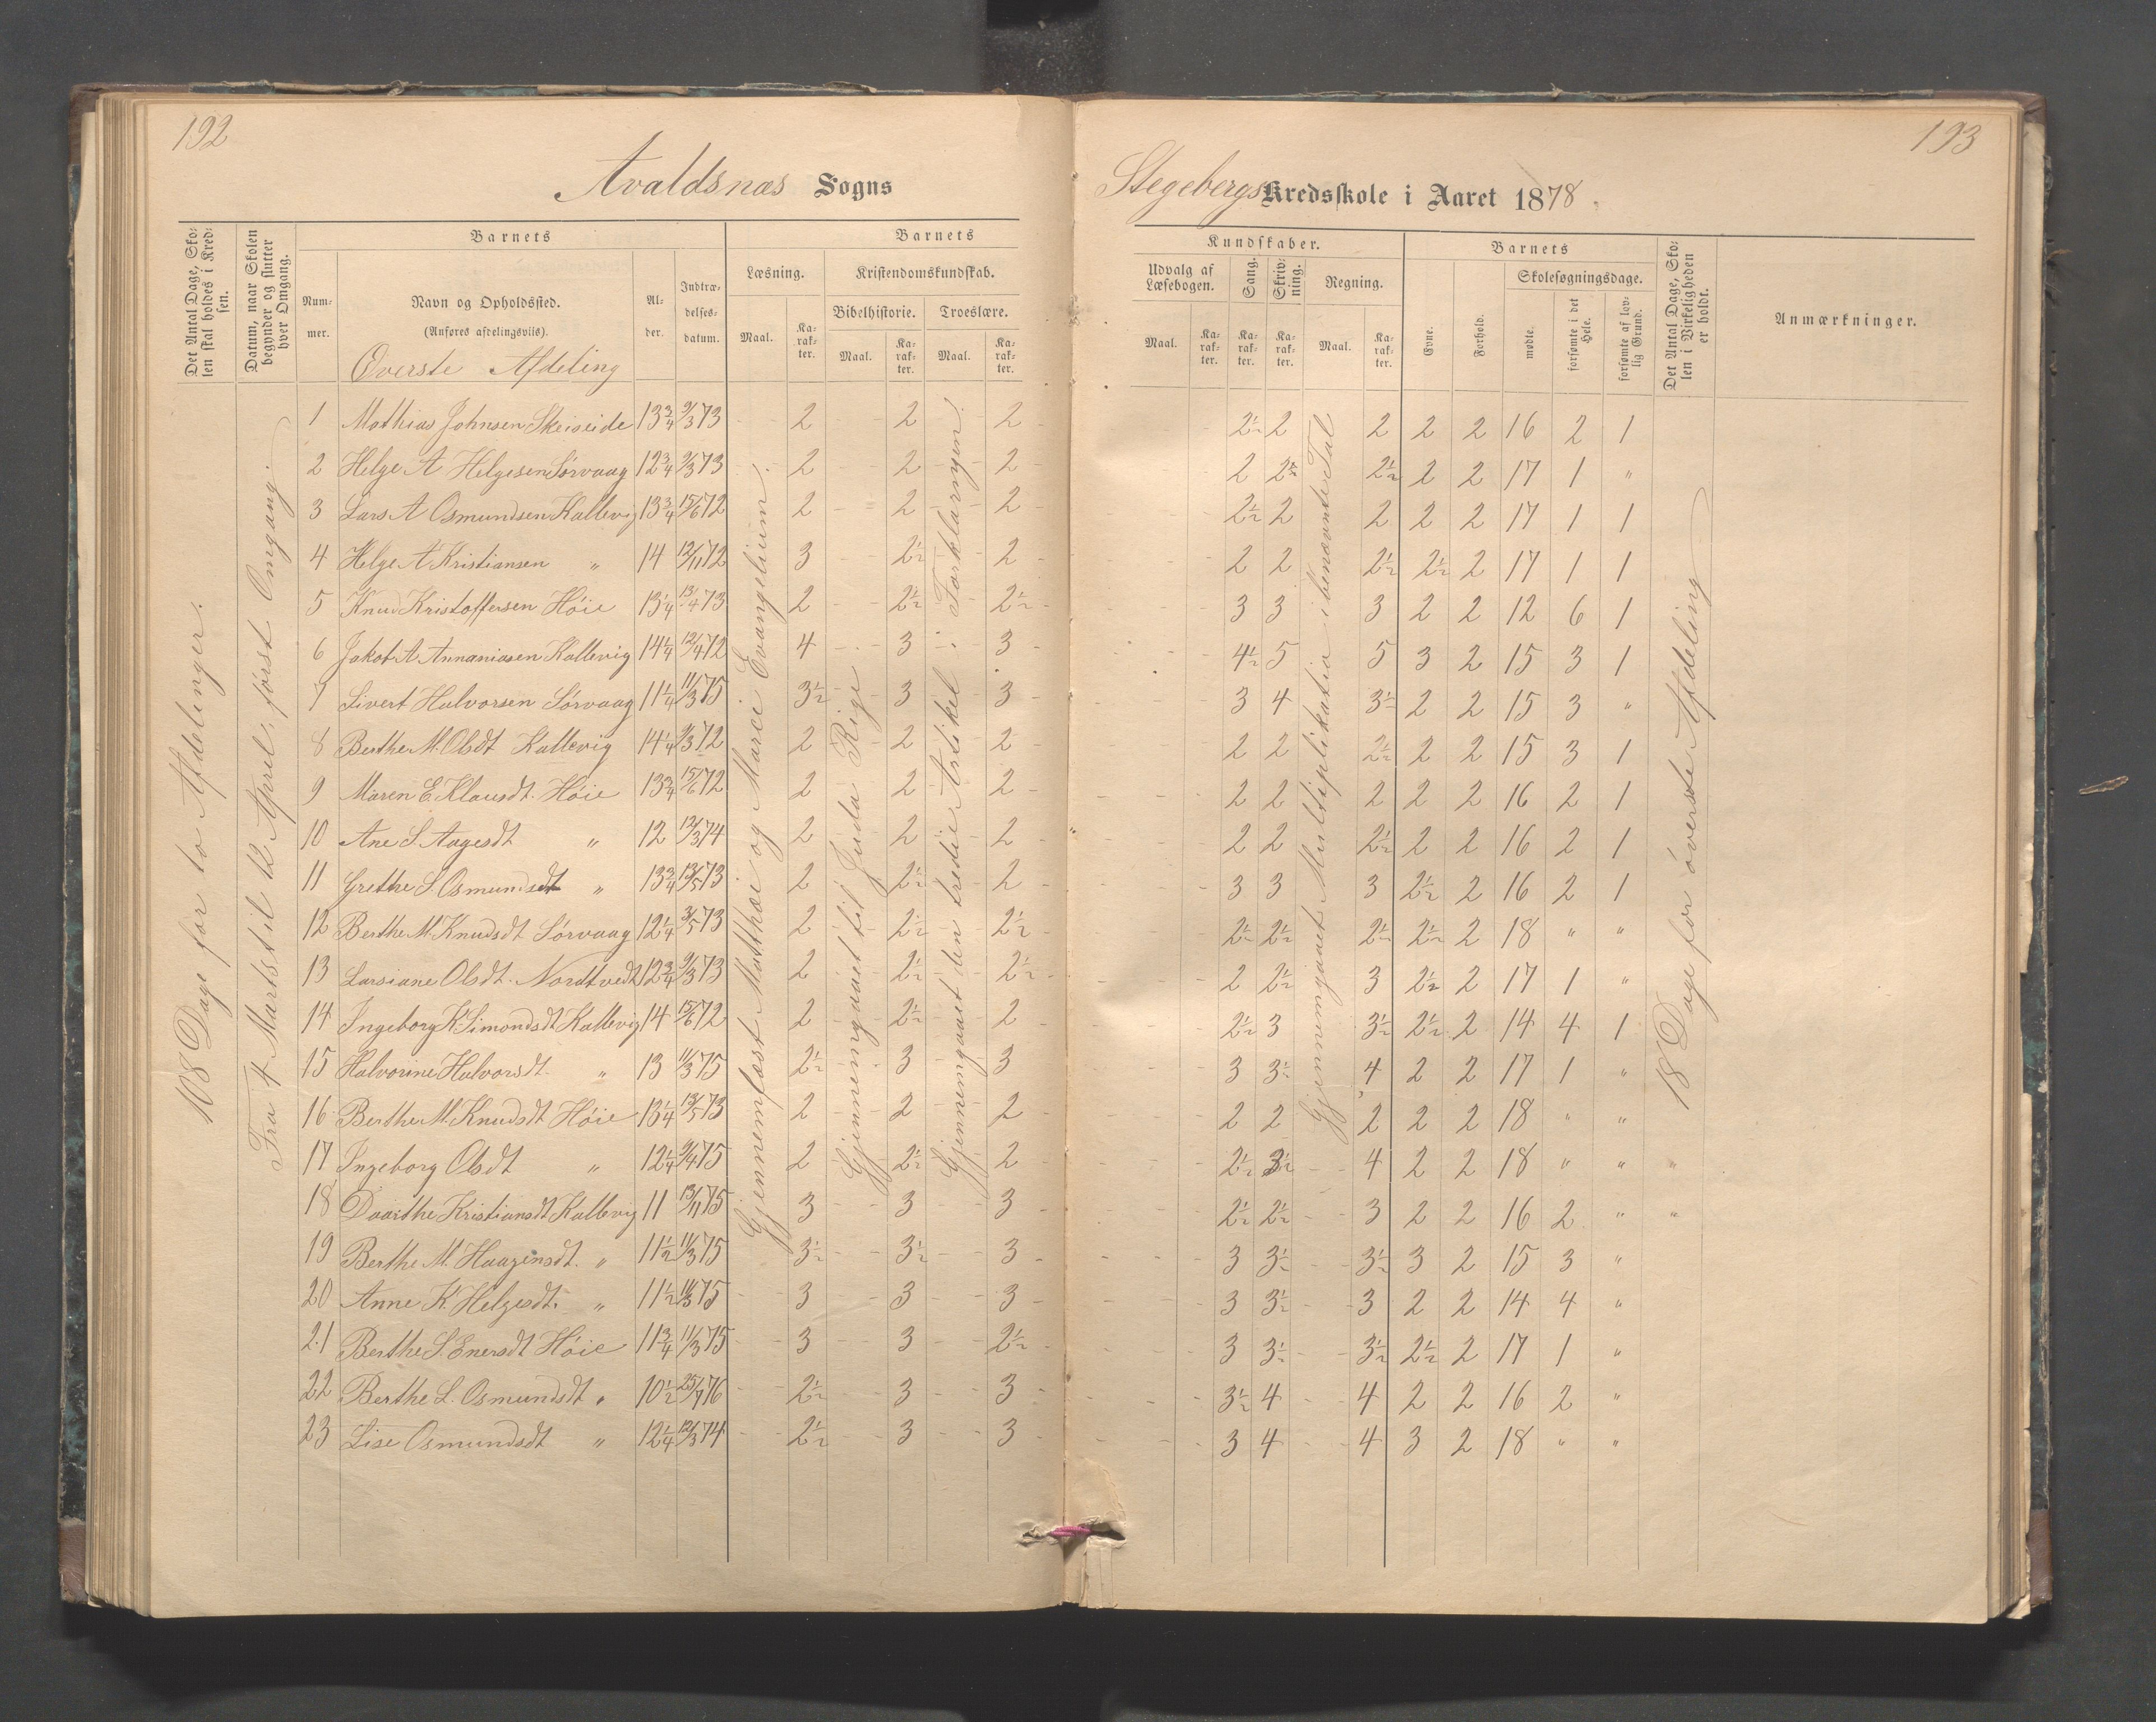 192
Avaldsnæs Sogns
Det Antal Dage, Skolen skal holdes i Kredsen.
Datum, naar Skolen begynder og slutter hver Omgang.
Barnets
Nummer.
Navn og Opholdssted.
(Anføres afdelingsvils).
Øverste Afdeling
Alder.
Indtrædelsesdatum.
Barnets
Læsning.
Maal.
Karakter.
Kristendomskundskab.
Bibelhistorie.
Maal.
Karakter.
Troeslære.
Maal.
Karakter.
108 Dage for to Afdelinger.
Fra 4 Marts til 12 April, først Omgang.
Gjennemlæst Matthæi og Marci Evangelium.
Gjennemgaaet til Juda Rige
Gjennemgaaet den tredie Artikel i Forklaringen.
1 Mathias Johnsen Skeiseide 13 3/4 9/3 73 2 2 2
2 Helge A Helgesen Sørvaag 12 3/4 9/3 73 2 2 2
3 Lars A Osmundsen Kallevig 13 3/4 15/6 72 2 2 2
4 Helge A Kristiansen " 14 12/11 72 3 2 1/2 2
5 Knud Kristoffersen Høie 13 1/4 13/4 73 2 2 1/2 2 1/2
6 Jakob A Annaniasen Kallevig 14 1/4 12/4 72 4 3 3
7 Sivert Halvorsen Sørvaag 11 1/4 11/3 75 3 1/2 3 3
8 Berthe M. Olsdt Kallevig 14 1/4 9/3 72 2 2 2
9 Maren E. Klausdt. Høie 13 3/4 15/6 72 2 2 2
10 Ane S. Aagesdt " 12 12/3 74 2 2 2
11 Grethe S. Osmundsdt " 13 3/4 13/5 73 2 2 1/2 2
12 Berthe M. Knudsdt Sørvaag 12 1/4 3/5 73 2 2 1/2 2 1/2
13 Larsiane Olsdt. Nordtvedt 12 3/4 9/3 73 2 2 1/2 2 1/2
14 Ingeborg K. Simondsdt Kallevig 14 15/6 72 2 2 1/2 2
15 Halvorine Halvorsdt. " 13 11/3 75 2 1/2 3 3
16 Berthe M. Knudsdt Høie 13 1/4 13/5 73 2 2 2
17 Ingeborg Olsdt " 12 1/4 9/4 75 2 2 1/2 2
18 Daarthe Kristiansdt Kallevig 11 13/11 75 3 3 3
19 Berthe M. Haagensdt. " 11 1/2 11/3 75 3 1/2 3 1/2 3
20 Anne K. Helgesdt. " 11 1/2 11/3 75 3 3 3
21 Berthe S. Enersdt Høie 11 3/4 11/3 75 3 3 2 1/2
22 Berthe L. Osmundsdt " 10 1/2 25/7 76 2 1/2 3 3
23 Lise Osmundsdt " 12 1/4 12/3 74 2 1/2 3 3
193
Stegebergs Kredsskole i Aaret 1878.
Kundskaber.
Udvalg af Læsebogen.
Maal.
Karakter.
Sang.
Karakter.
Skrivning.
Karakter.
Regning.
Maal.
Karakter.
Barnets
Evne.
Forhold.
Skolesøgningsdage.
mødte.
forsømte i det Hele.
forsømte af lovlig Grund.
Det Antal Dage, Skolen i Virkeligheden er holdt.
Anmærkninger.
Gjennemgaaet Multiplikation i benævnte Tal
18 Dage for øverste Afdeling
2 1/2 2 2 2 2 16 2 1
2 2 1/2 2 1/2 2 2 17 1 "
2 1/2 2 2 2 2 17 1 1
2 2 2 1/2 2 1/2 2 17 1 1
3 3 3 2 2 12 6 1
4 1/2 5 5 3 2 15 3 1
3 4 3 1/2 2 2 15 3 "
2 2 2 1/2 2 2 15 3 1
2 2 2 2 2 16 2 1
2 2 2 1/2 2 2 16 2 1
3 3 3 2 1/2 2 16 2 1
2 1/2 2 1/2 2 1/2 2 1/2 2 18 " "
2 2 1/2 3 2 1/2 2 17 1 "
2 1/2 3 3 1/2 2 1/2 2 14 4 1
3 3 1/2 4 2 2 17 1 "
2 2 2 2 2 18 " "
2 1/2 3 1/2 4 2 2 18 " " "
2 1/2 2 1/2 3 2 2 16 2 " "
3 3 1/2 3 1/2 3 2 15 3 "
3 3 1/2 3 2 2 14 4 "
3 3 1/2 3 1/2 2 1/2 2 17 1 "
3 1/2 4 4 2 2 16 2 "
3 4 4 3 2 18 " "